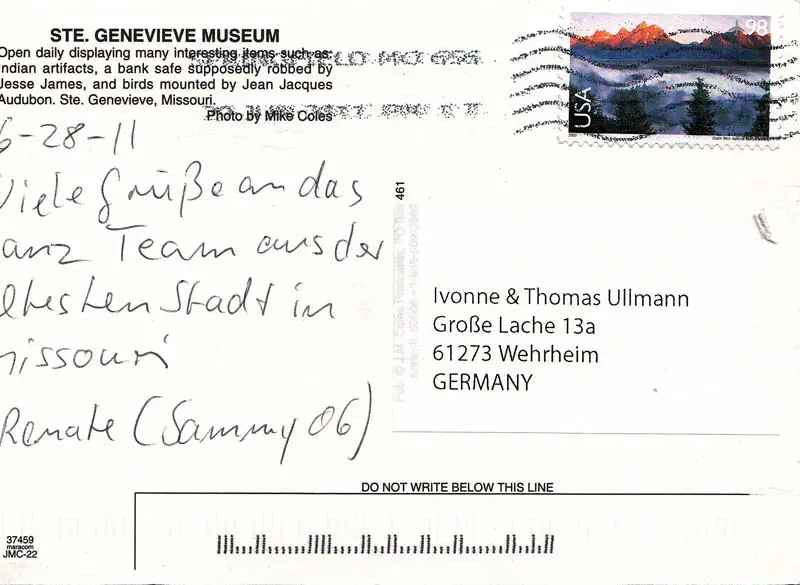 STE. GENEVIEVE MUSEUM
Open daily displaying many interesting items such as:
Indian artifacts, a bank safe supposedly robbed by
Jesse James, and birds mounted by Jean Jacques
Audubon. Ste. Genevieve, Missouri.
Photo by Mike Coles
SPRINGFIELD MO 656
98
USA
6-28-11
Viele Grüße an das
ganz Team aus der
ältesten Stadt in
Missouri
Renate (Sammy 06)
461
Ivonne & Thomas Ullmann
Große Lache 13a
61273 Wehrheim
GERMANY
DO NOT WRITE BELOW THIS LINE
37459
maracom
JMC-22